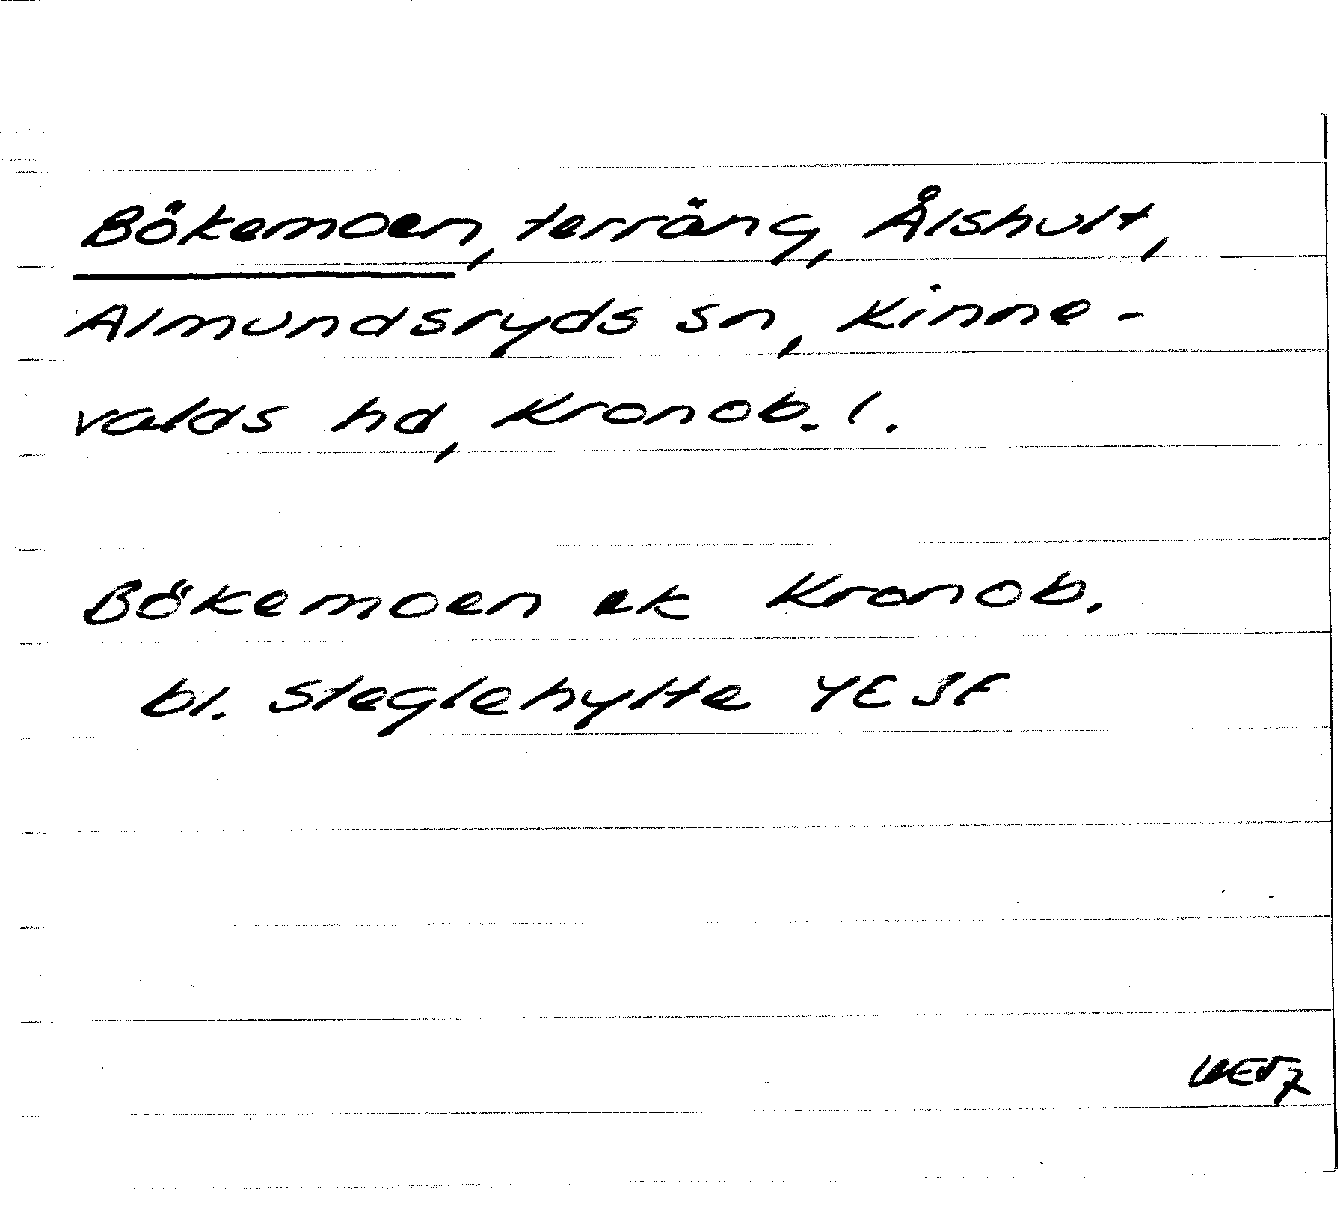 Bökemoen, terräng, Ålshult,
Almundsryds sn, Kinne-
valds hd, Kronob. l.
Bökemoen ek Kronob.
bl. Steglehylte 4E3F